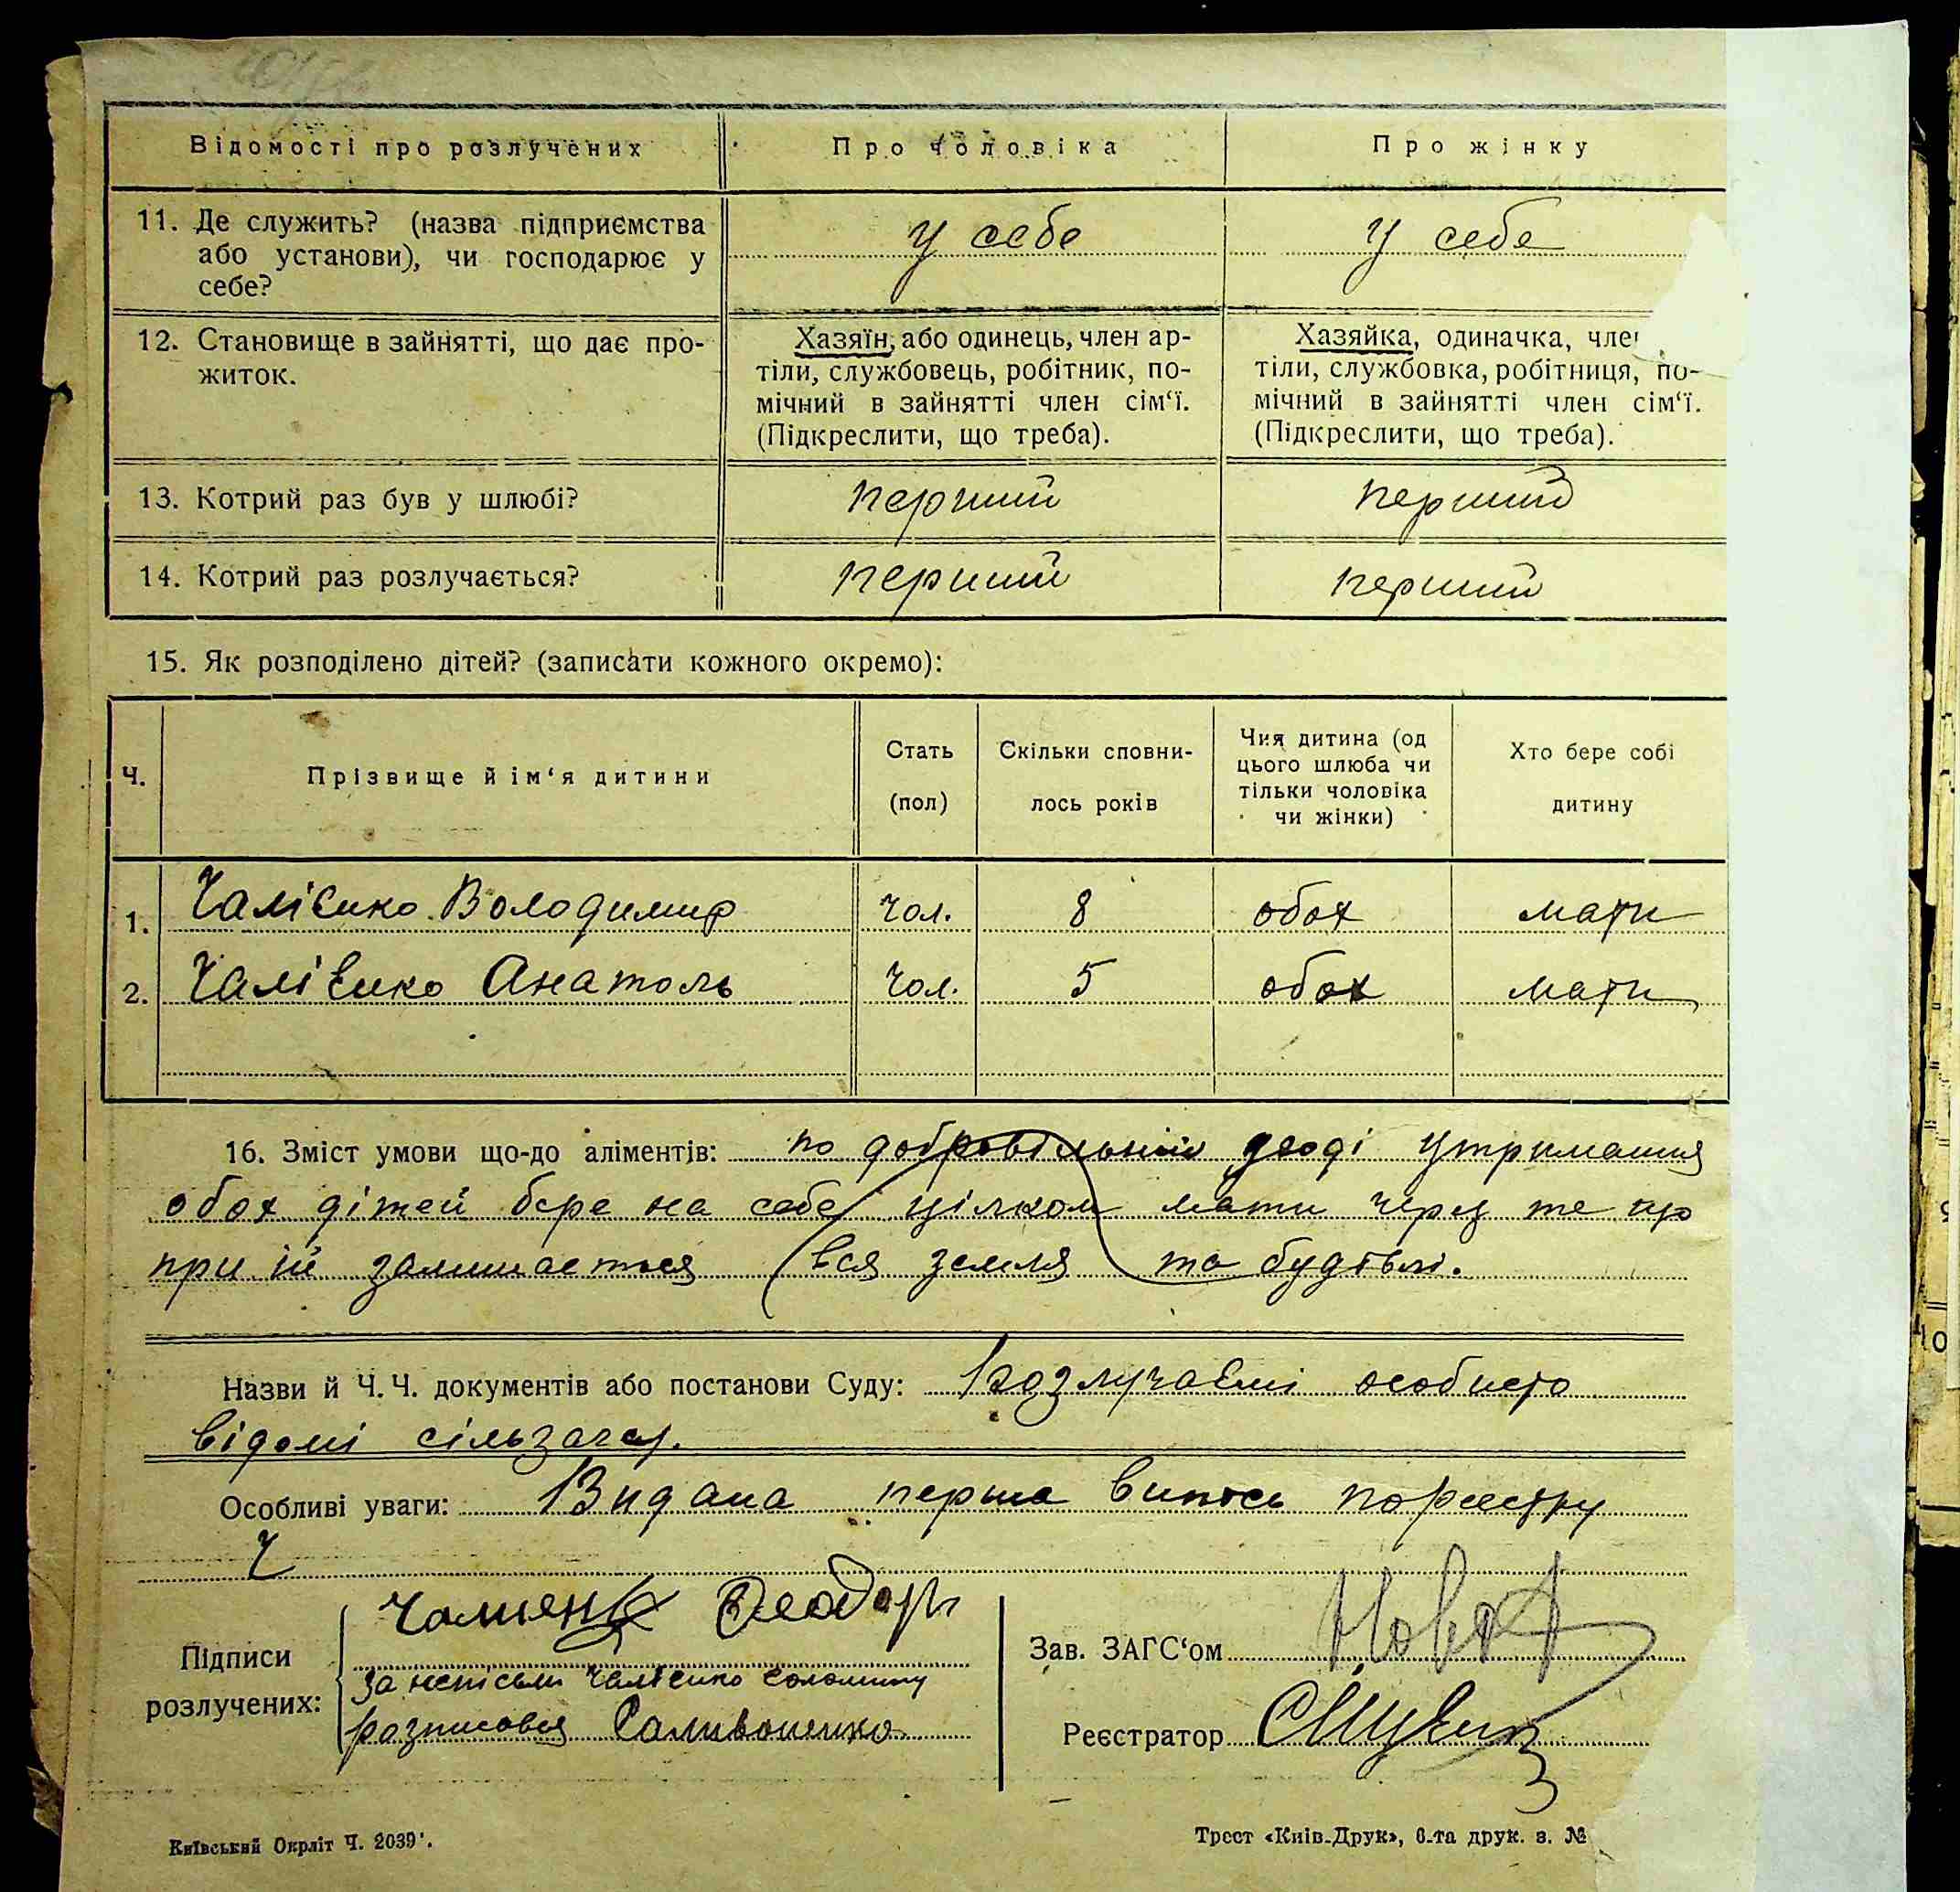 Відомості про розлучених
Про чоловіка
Про жінку
11. Де служить? (назва підприємства
або установи), чи господарює у
себе?
у себе
у себе
12. Становище в зайнятті, що дає про-
житок.
Хазяїн, або одинець, член ар-
тіли, службовець, робітник, по-
мічний в зайнятті член сім‘ї.
(Підкреслити, що треба).
Хазяйка, одиначка, член
тіли, службовка, робітниця, по-
мічний в зайнятті член сім‘ї.
(Підкреслити, що треба).
13. Котрий раз був у шлюбі?
перший
перший
14. Котрий раз розлучається?
перший
перший
15. Як розподілено дітей? (записати кожного окремо):
Ч.
Прізвище й ім‘я дитини
Стать
(пол)
Скільки сповни-
лось років
Чия дитина (од
цього шлюба чи
тільки чоловіка
чи жінки)
Хто бере собі
дитину
1. Чалієнко Володимир чол. 8 обох мати
2. Чалієнко Анатоль чол. 5 обох мати
16. Зміст умови що-до аліментів: по добровільній згоді утримання
обох дітей бере на себе цілком мати через те що
при їй залишається вся земля та будівлі.
Назви й Ч. Ч. документів або постанови Суду: Розлучаємі особисто
відомі сільзагсу.
Особливі уваги: Видана перша випись по реєстру
Ч
Підписи
розлучених:
За неписьм Чалієнко Соломину
розписовся
Зав. ЗАГС‘ом
Реєстратор
Київський Окрліт Ч. 2039'.
Трест «Київ-Друк», 6-та друк. з. №